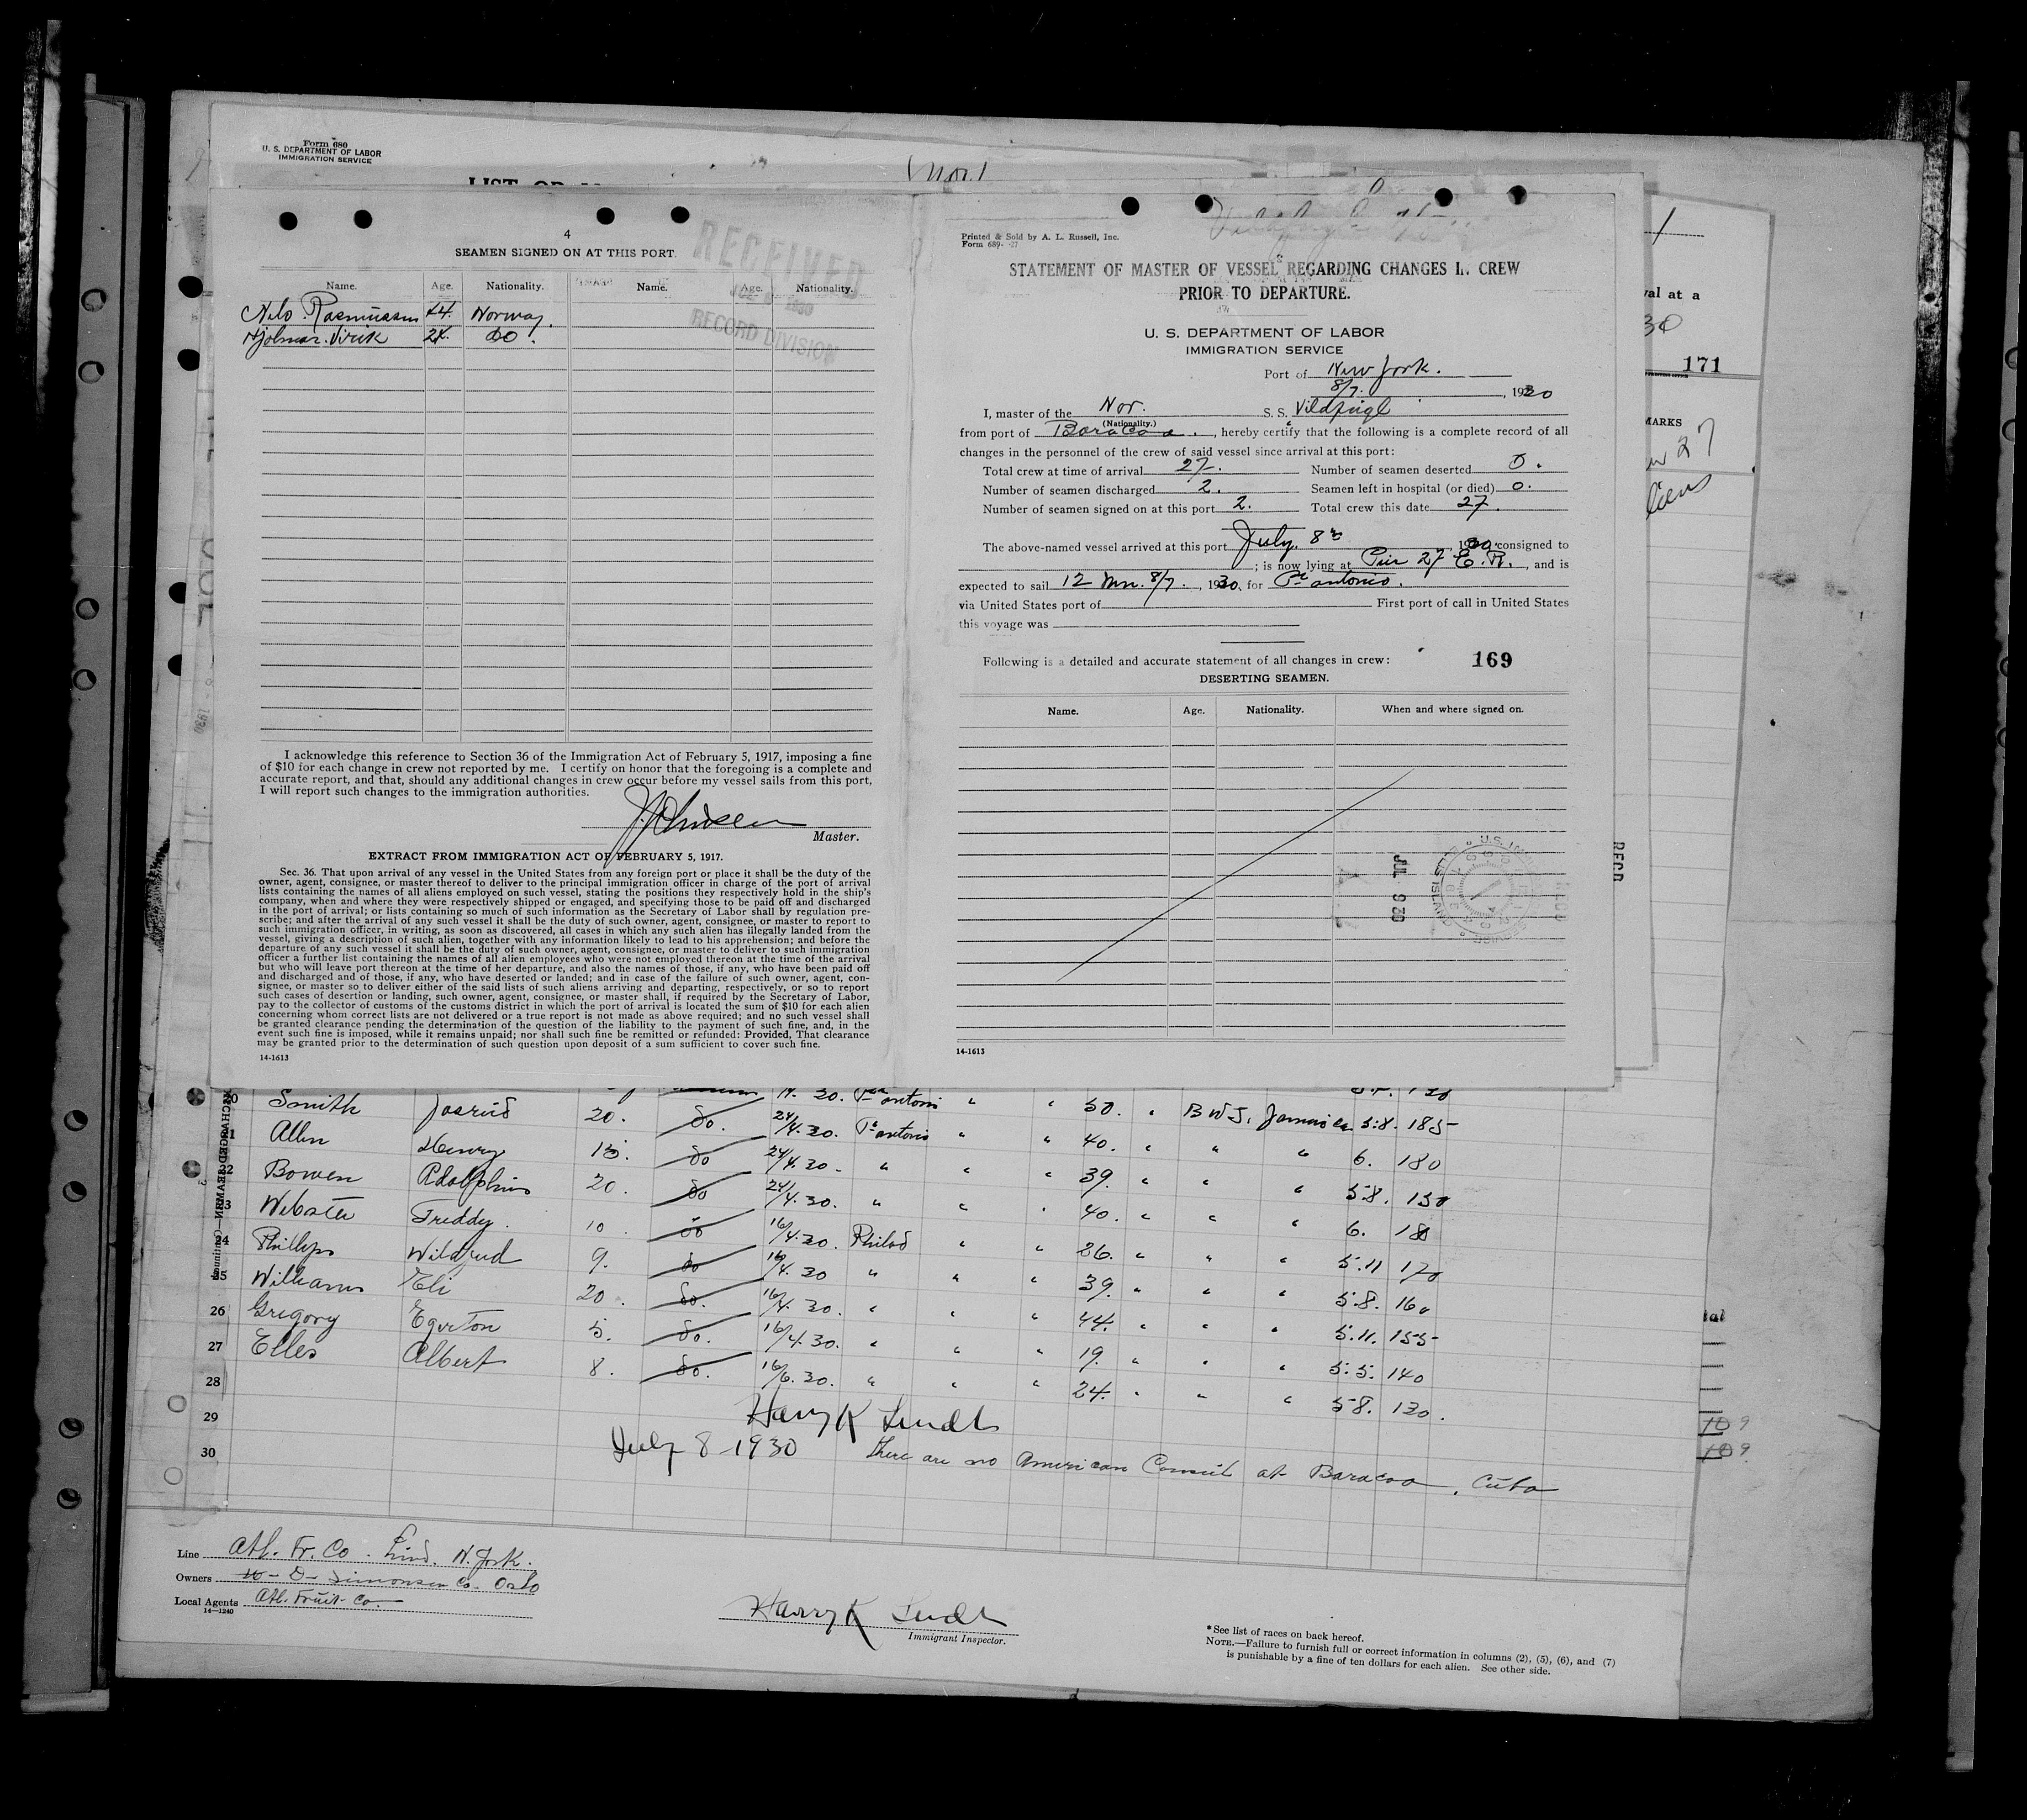 Form 680
U. S. DEPARTMENT OF LABOR
IMMIGRATION SERVICE
4
SEAMEN SIGNED ON AT THIS PORT.
RECEIVED
RECORD DIVISION
Name. Age. Nationality. Name. Age. Nationality.
Nils Rasmussen 44. Norway.
Hjolmar Virik 24. do.
I acknowledge this reference to Section 36 of the Immigration Act of February 5, 1917, imposing a fine
of $10 for each change in crew not reported by me. I certify on honor that the foregoing is a complete and
accurate report, and that, should any additional changes in crew occur before my vessel sails from this port,
I will report such changes to the immigration authorities.
Master.
EXTRACT FROM IMMIGRATION ACT OF FEBRUARY 5, 1917.
Sec. 36. That upon arrival of any vessel in the United States from any foreign port or place it shall be the duty of the
owner, agent, consignee, or master thereof to deliver to the principal immigration officer in charge of the port of arrival
lists containing the names of all aliens employed on such vessel, stating the positions they respectively hold in the ship's
company, when and where they were respectively shipped or engaged, and specifying those to be paid off and discharged
in the port of arrival; or lists containing so much of such information as the Secretary of Labor shall by regulation pre-
scribe; and after the arrival of any such vessel it shall be the duty of such owner, agent, consignee, or master to report to
such immigration officer, in writing, as soon as discovered, all cases in which any such alien has illegally landed from the
vessel, giving a description of such alien, together with any information likely to lead to his apprehension; and before the
departure of any such vessel it shall be the duty of such owner, agent, consignee, or master to deliver to such immigration
officer a further list containing the names of all alien employees who were not employed thereon at the time of the arrival
but who will leave port thereon at the time of her departure, and also the names of those, if any, who have been paid off
and discharged and of those, if any, who have deserted or landed; and in case of the failure of such owner, agent, con-
signee, or master so to deliver either of the said lists of such aliens arriving and departing, respectively, or so to report
such cases of desertion or landing, such owner, agent, consignee, or master shall, if required by the Secretary of Labor,
pay to the collector of customs of the customs district in which the port of arrival is located the sum of $10 for each alien
concerning whom correct lists are not delivered or a true report is not made as above required; and no such vessel shall
be granted clearance pending the determination of the question of the liability to the payment of such fine, and, in the
event such fine is imposed, while it remains unpaid; nor shall such fine be remitted or refunded: Provided, That clearance
may be granted prior to the determination of such question upon deposit of a sum sufficient to cover such fine.
14-1613
Printed & Sold by A. L. Russell, Inc.
Form 689-
STATEMENT OF MASTER OF VESSEL REGARDING CHANGES IN CREW
PRIOR TO DEPARTURE.
U. S. DEPARTMENT OF LABOR
IMMIGRATION SERVICE
Port of New York.
8/7. , 1930
I, master of the Nor. S. S. Vildfugl
(Nationality.)
from port of Baracoa. , hereby certify that the following is a complete record of all
changes in the personnel of the crew of said vessel since arrival at this port:
Total crew at time of arrival 27. Number of seamen deserted 0.
Number of seamen discharged 2. Seamen left in hospital (or died) 0.
Number of seamen signed on at this port 2. Total crew this date 27.
The above-named vessel arrived at this port July. 8th , 1930, consigned to
; is now lying at Pier 27 E. R. , and is
expected to sail 12 Mn. 8/7. , 1930, for Pt antonio.
via United States port of First port of call in United States
this voyage was
Following is a detailed and accurate statement of all changes in crew: 169
DESERTING SEAMEN.
Name. Age. Nationality. When and where signed on.
JUL 9
14-1613
171
MARKS
27
Smith 20. do. 24/4.30. Pt antonio " " 50. " B W I. Jamaica 5.8. 185
Allen Henry 15. do 24/4.30. " " " 40. " " " 6. 180
Bowen Adolphus 20. do 24/4.30. " " " 39. " " " 5.8. 150
Webster Freddy. 10 do 16/4.30. Philad " " 40. " " " 6. 180
Phillips 9. do 16/4.30 " " " 26. " " " 5.11 170
Williams Eli 20. do. 16/4.30. " " " 39. " " " 5.8. 160
26 Gregory Egerton 5. do. 16/4.30. " " " 44. " " " 5.11. 155
27 Elles Albert 8. do. 16/6.30. " " " 19. " " " 5.5. 140
28 24. " " " 5.8. 130.
29 Harry K Lindt
30 July 8-1930 There are no American Consul at Baracoa, Cuba
Line Atl. Fr. Co. Lind. N. York.
Owners W- D- Simonsen Co- Oslo
Local Agents Atl. Fruit Co.
14-1240
Harry K Lindt
Immigrant Inspector.
*See list of races on back hereof.
NOTE.—Failure to furnish full or correct information in columns (2), (5), (6), and (7)
is punishable by a fine of ten dollars for each alien. See other side.